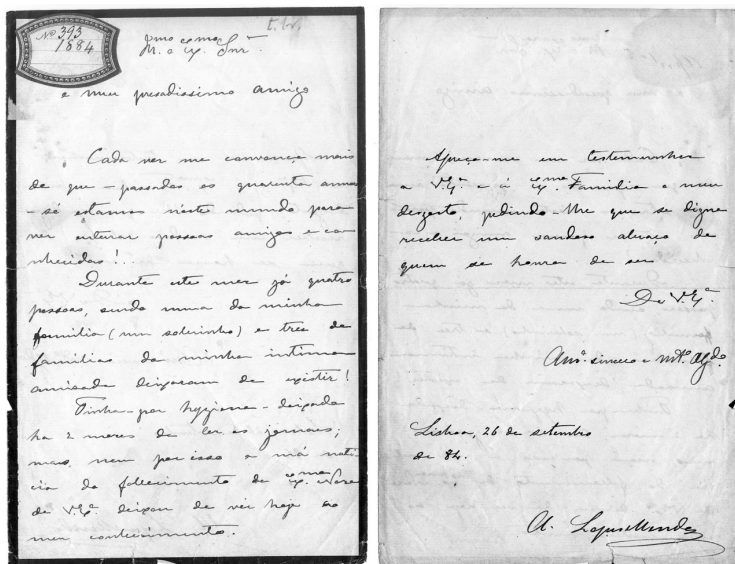 Nº 393
1884
Illmo Exmo
M. e Ex. Snr.
e meu presadissimo amigo
Cada vez me convenço mais
de que - passados os quarenta annos
- só estamos n'este mundo para
ver enterrar pessoas amigas e co-
nhecidas!
Durante este mez já quatro
pessoas, sendo uma da minha
familia (um sobrinho) e tres de
familias da minha intima
amisade deixaram de existir!
Tinha - por hygiene - deixado
ha 2 mezes de ler os jornaes;
mas, nem por isso a má noti-
cia do fallecimento da Exma
de V. Exª deixou de vir hoje ao
meu conhecimento.
Apreço-me em testemunhar
a V. Exª e á Exma Familia o meu
desgosto, pedindo-lhe que se digne
receber um saudoso abraço de
quem se honra de ser
De V. Exª
Amº sincero e mtº Obgdo
Lisboa, 26 de setembro
de 84.
A. Lopes Mendes